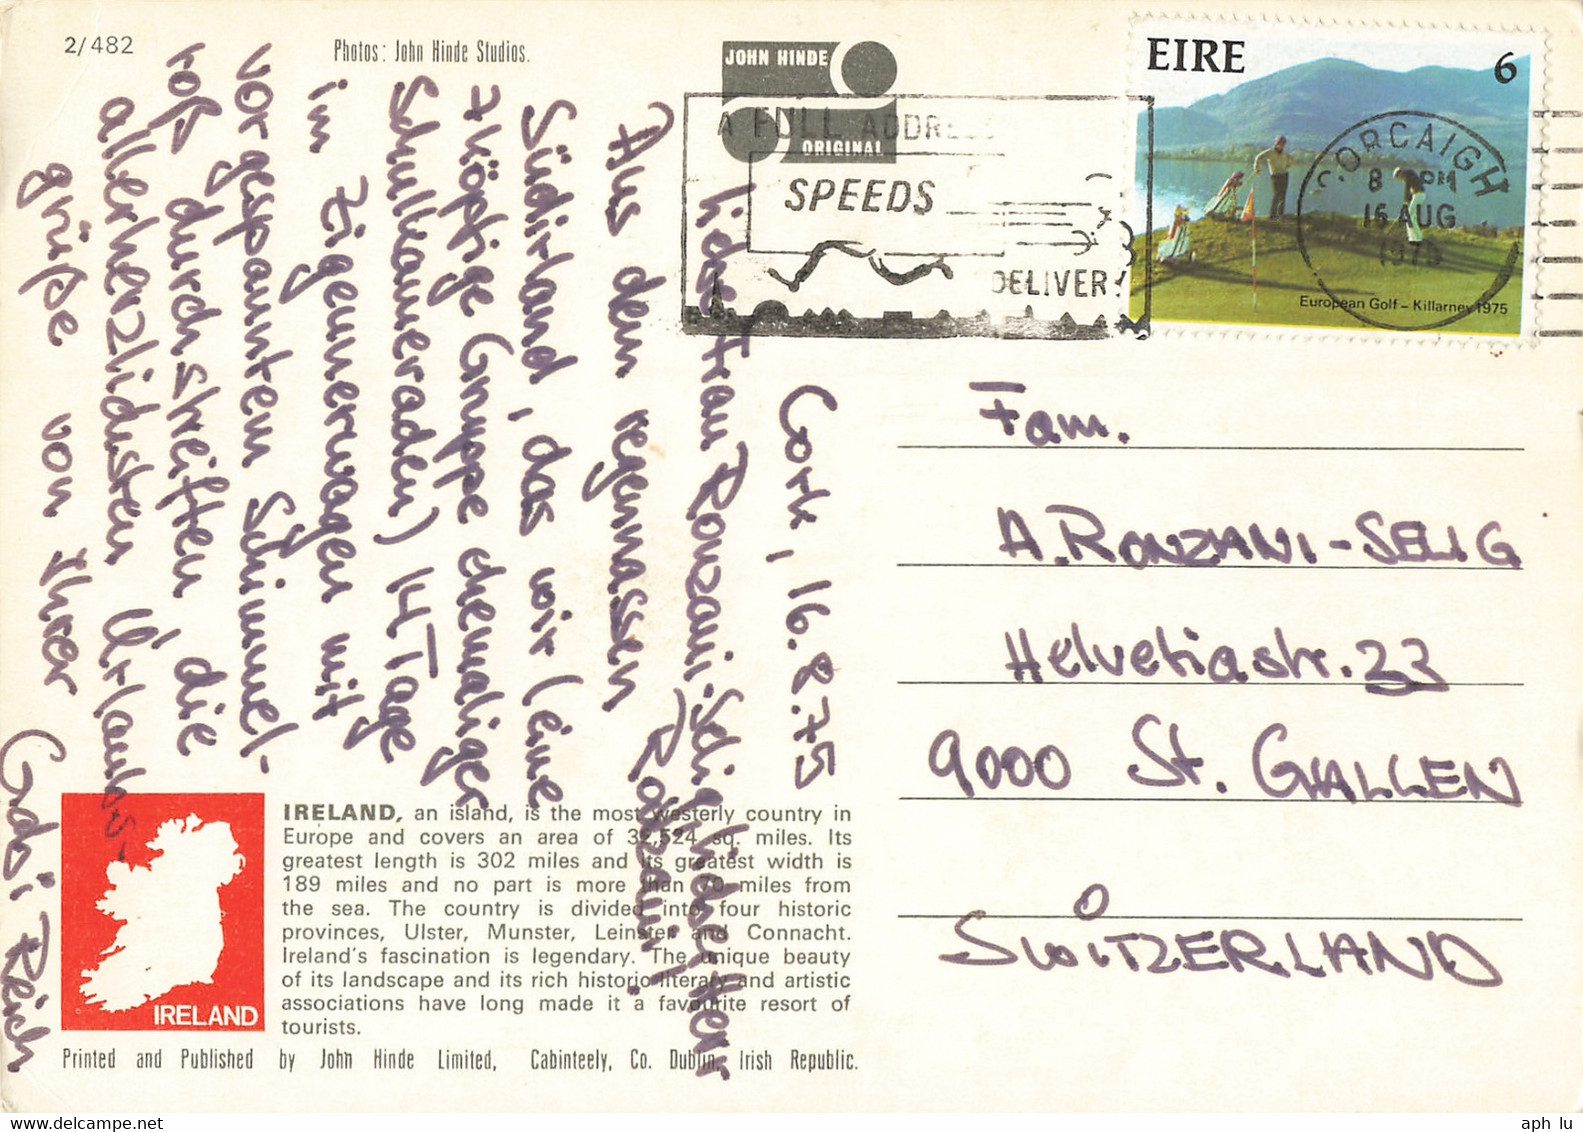 2/482
Photos: John Hinde Studios.
JOHN HINDE
ORIGINAL
A FULL ADDRESS
SPEEDS
DELIVERY
EIRE 6
CORCAIGH
8 PM
16 AUG
1975
European Golf – Killarney 1975
Cork, 16.8.75
Liebe Frau Ronzani-Selig, lieber Herr
Ronzani!
Aus dem regennassen
Südirland, das wir (eine
7köpfige Gruppe ehemaliger
Schulkameraden) 14 Tage
im Zigeunerwagen mit
vorgespanntem Schimmel-
roß durchstreiften, die
allerherzlichsten Urlaubs-
grüße von Ihrer
Gaboi Reich
Fam.
A. RONZANI-SELIG
Helvetiastr. 33
9000 St. GALLEN
SWITZERLAND
IRELAND, an island, is the most westerly country in
Europe and covers an area of 32,524 sq. miles. Its
greatest length is 302 miles and its greatest width is
189 miles and no part is more than 70 miles from
the sea. The country is divided into four historic
provinces, Ulster, Munster, Leinster and Connacht.
Ireland's fascination is legendary. The unique beauty
of its landscape and its rich historic literary and artistic
associations have long made it a favourite resort of
tourists.
IRELAND
Printed and Published by John Hinde Limited, Cabinteely, Co. Dublin, Irish Republic.
aph lu